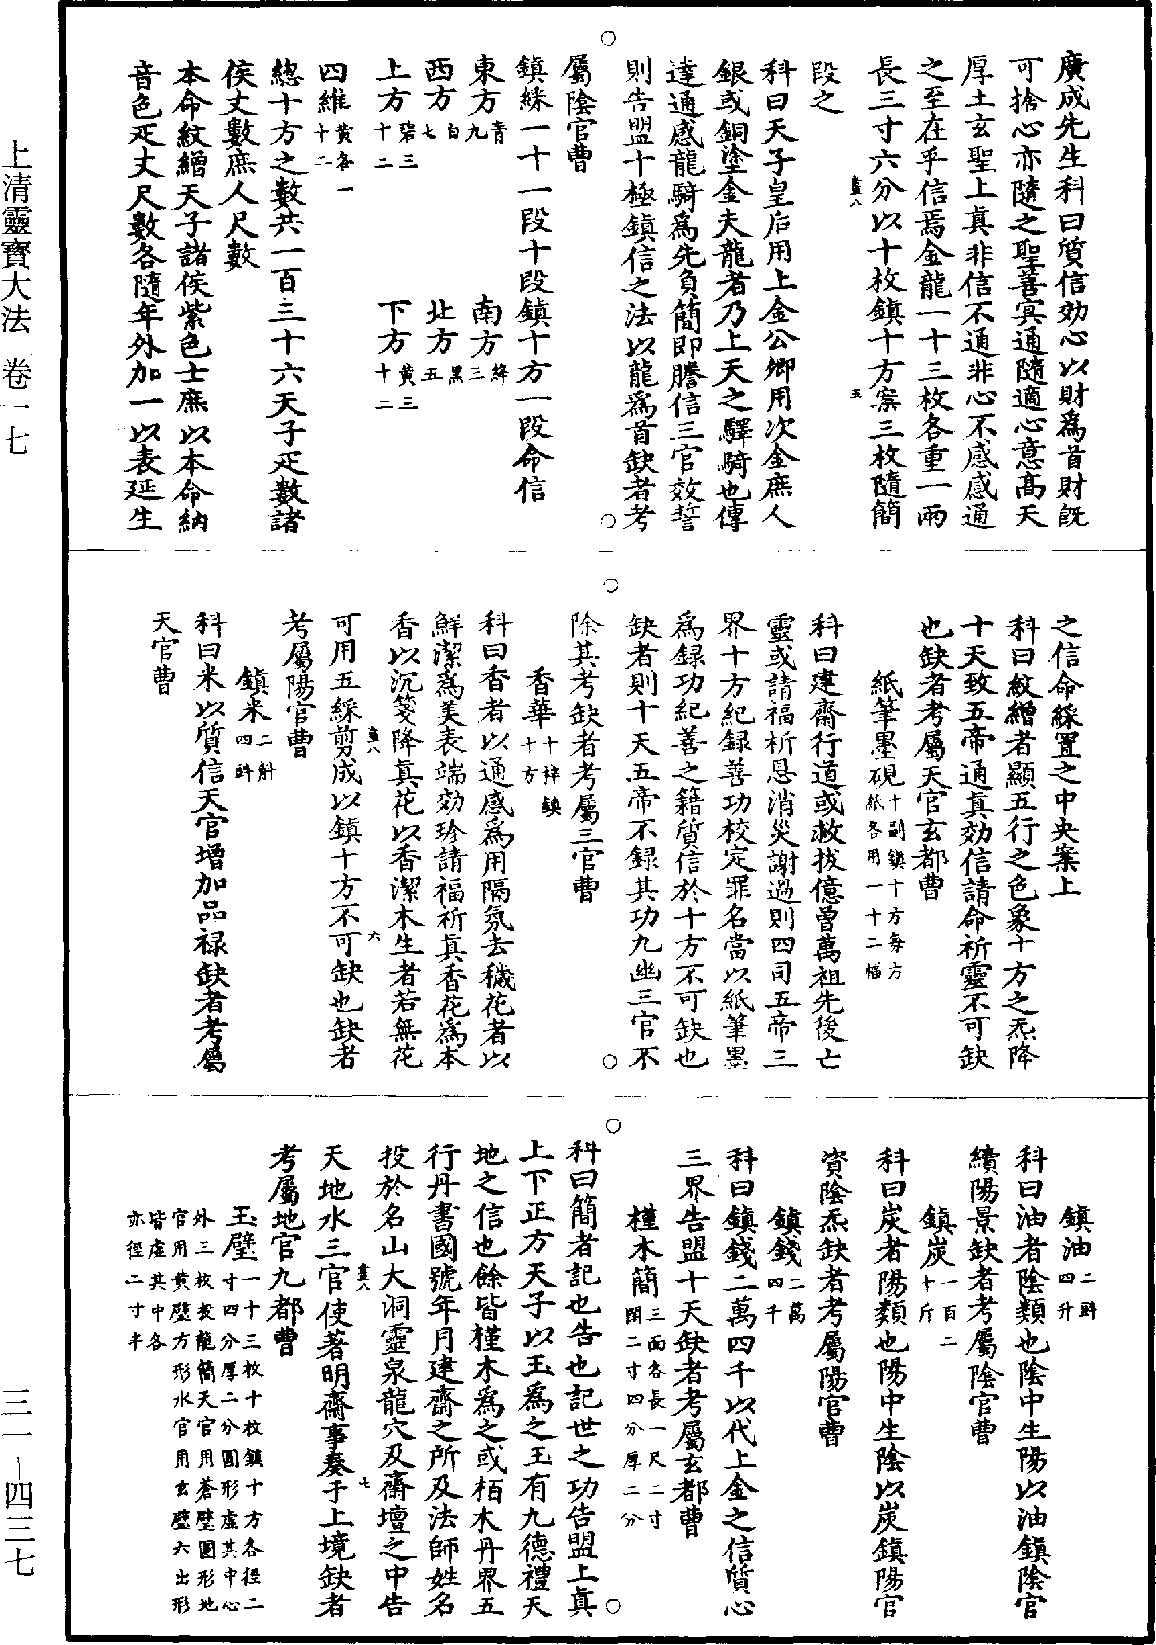 廣成先生科曰質信効心以財爲首財既
可捨心亦隨之聖善冥通隨適心意高天
厚土玄聖上真非信不通非心不感感通
之至在乎信焉金龍一十三枚各重一兩
長三寸六分以十枚鎮十方案三枚隨簡
段之
科曰天子皇后用上金公卿用次金庶人
銀或銅塗金夫龍者乃上天之驛騎也傳
達通感龍騎爲先負簡即謄信三官效誓
則告盟十極鎮信之法以龍爲首缺者考
屬陰官曹
鎮綵一十一段十段鎮十方一段命信
東方青九　南方絳三
西方白七　北方黑五
上方碧三十二　下方黃三十二
四維黃各一十二
總十方之數共一百三十六天子疋數諸
侯丈數庶人尺數
本命紋繒天子諸侯紫色士庶以本命納
音色疋丈尺數各隨年外加一以表延生
之信命綵置之中央案上
科曰紋繒者顯五行之色象十方之炁降
十天致五帝通真効信請命祈靈不可缺
也缺者考屬天官玄都曹
紙筆墨硯十副鎮十方每方紙各用一十二幅
科曰建齋行道或救拔億曾萬祖先後亡
靈或請福祈恩消災謝過則四司五帝三
界十方紀録善功校定罪名當以紙筆墨
爲録功紀善之籍質信於十方不可缺也
缺者則十天五帝不録其功九幽三官不
除其考缺者考屬三官曹
香華十梓鎮十方
科曰香者以通感爲用隔氛去穢花者以
鮮潔爲美表端効珍請福祈真香花爲本
香以沉箋降真花以香潔木生者若無花
可用五綵剪成以鎮十方不可缺也缺者
考屬陽官曹
鎮米二斛四㪷
科曰米以質信天官增加品禄缺者考屬
天官曹
鎮油二㪷四升
科曰油者陰類也陰中生陽以油鎮陰官
續陽景缺者考屬陰官曹
鎮炭一百二十斤
科曰炭者陽類也陽中生陰以炭鎮陽官
資陰炁缺者考屬陽官曹
鎮錢二萬四千
科曰鎮錢二萬四千以代上金之信質心
三界告盟十天缺者考屬玄都曹
槿木簡三面各長一尺二寸闊二寸四分厚二分
科曰簡者記也告也記世之功告盟上真
上下正方天子以玉爲之玉有九德禮天
地之信也餘皆槿木爲之或栢木丹界五
行丹書國號年月建齋之所及法師姓名
投於名山大洞靈泉龍穴及齋壇之中告
天地水三官使著明齋事奏于上境缺者
考屬地官九都曹
玉璧一十三枚十枚鎮十方各徑二
寸四分厚二分圓形虛其中心
外三枚投龍簡天官用蒼璧圓形地
官用黃璧方形水官用玄璧六出形
皆虛其中各
亦徑二寸半
上清靈寶大法　卷一七
三一－四三七